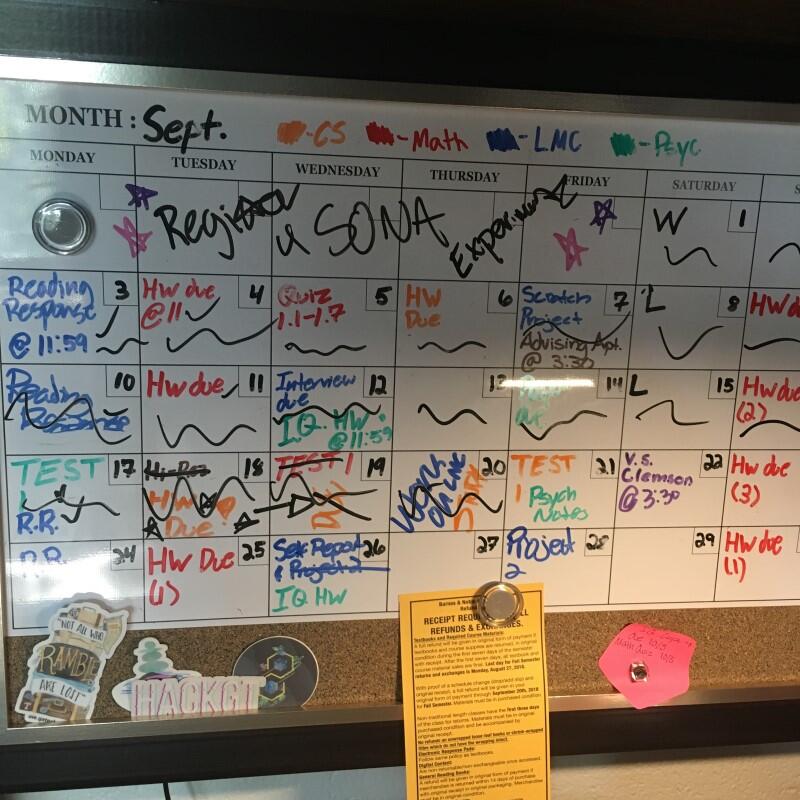 MONTH: Sept. -CS -Math -LMC -Psyc
MONDAY TUESDAY WEDNESDAY THURSDAY FRIDAY SATURDAY S
SONA W 1
Reading Response @ 11:59 3
HW due @ 11 4
Quiz 1.1-1.7 5
HW Due 6
Scratch Project Advising Apt. @ 3:30 7
L 8
HW d
Reading Response 10
Hw due 11
Interview due 12
IQ HW @ 11:59
13
14
L 15
Hw due (2)
TEST 1 R.R. 17
HW Due 18
TEST 1 19
20
TEST 1 Psych Notes 21
V.S. Clemson @ 3:30 22
Hw due (3)
R.R. 24
HW Due (1) 25
Self Report & Project 2 IQ HW 26
27
Project 2 28
29
Hw due (1)
"NOT ALL WHO
RAMBLE
ARE LOST"
HACKGT
REFUNDS & EXCHANGES.
Textbooks and Required Course Materials:
A full refund will be given in original form of payment if
textbooks and course supplies are returned, in original
condition during the first seven days of the semester
with receipt. After the first seven days, all textbook and
course material sales are final. Last day for Fall Semester
returns and exchanges is Monday, August 27, 2018.
With proof of a schedule change (drop/add slip) and
original receipt, a full refund will be given in your
original form of payment through September 20th, 2018
for Fall Semester. Materials must be in original
purchased condition.
Non-traditional length classes have the first three days
of the class for returns. Materials must be in original
purchased condition and be accompanied by
original receipt.
No refunds on unwrapped loose leaf books or shrink-wrapped
titles which do not have the wrapping intact.
Electronic Response Pads:
Follow same policy as textbooks.
Digital Content:
Are non-returnable/non-exchangeable once accessed.
General Reading Books:
A refund will be given in original form of payment if
merchandise is returned within 14 days of purchase
with original receipt in original packaging. Merchandise